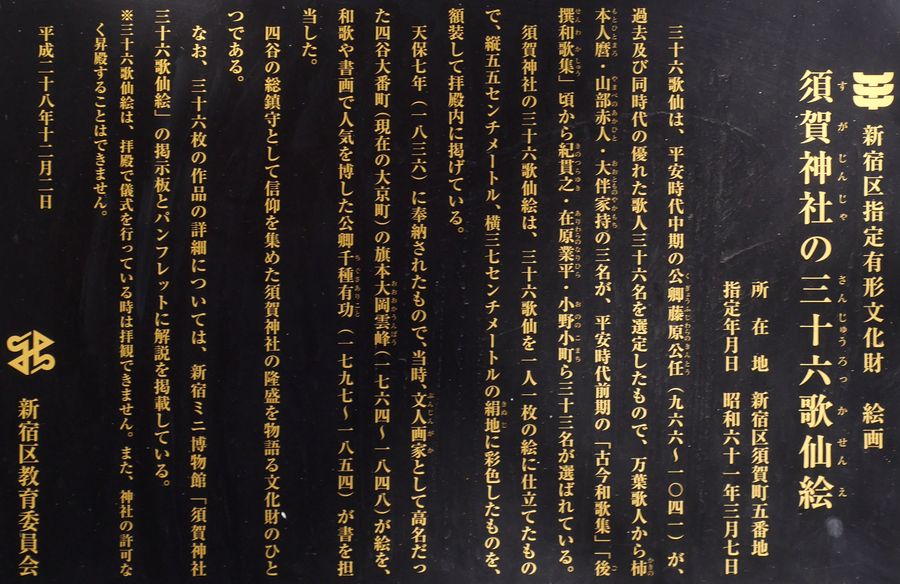 新宿区指定有形文化財　絵画
須賀神社の三十六歌仙絵
すがじんじゃ　さんじゅうろっかせんえ
所在地　新宿区須賀町五番地
指定年月日　昭和六十一年三月七日
三十六歌仙は、平安時代中期の公卿藤原公任（九六六〜一〇四一）が、
くぎょうふじわらのきんとう
過去及び同時代の優れた歌人三十六名を選定したもので、万葉歌人から柿
かきの
本人麿・山部赤人・大伴家持の三名が、平安時代前期の「古今和歌集」「後
もとひとまろ　やまべのあかひと　おおとものやかもち　ご
撰和歌集」頃から紀貫之・在原業平・小野小町ら三十三名が選ばれている。
せんわかしゅう　きのつらゆき　ありわらのなりひら　おののこまち
須賀神社の三十六歌仙絵は、三十六歌仙を一人一枚の絵に仕立てたもの
で、縦五五センチメートル、横三七センチメートルの絹地に彩色したものを、
きぬじ
額装して拝殿内に掲げている。
天保七年（一八三六）に奉納されたもので、当時、文人画家として高名だっ
ぶんじんがか
た四谷大番町（現在の大京町）の旗本大岡雲峰（一七六四〜一八四八）が絵を、
おおおかうんぽう
和歌や書画で人気を博した公卿千種有功（一七九七〜一八五四）が書を担
ちぐさありこと
当した。
四谷の総鎮守として信仰を集めた須賀神社の隆盛を物語る文化財のひと
つである。
なお、三十六枚の作品の詳細については、新宿ミニ博物館「須賀神社
三十六歌仙絵」の掲示板とパンフレットに解説を掲載している。
※三十六歌仙絵は、拝殿で儀式を行っている時は拝観できません。また、神社の許可な
く昇殿することはできません。
平成二十八年十二月二日
新宿区教育委員会